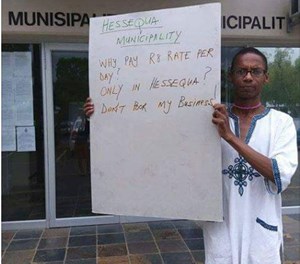 MUNISIPA UNICIPALIT
HESSEQUA
MUNICIPALITY
WHY PAY R8 RATE PER
DAY?
ONLY IN HESSEQUA?
DON'T BOR MY BUSINESS!